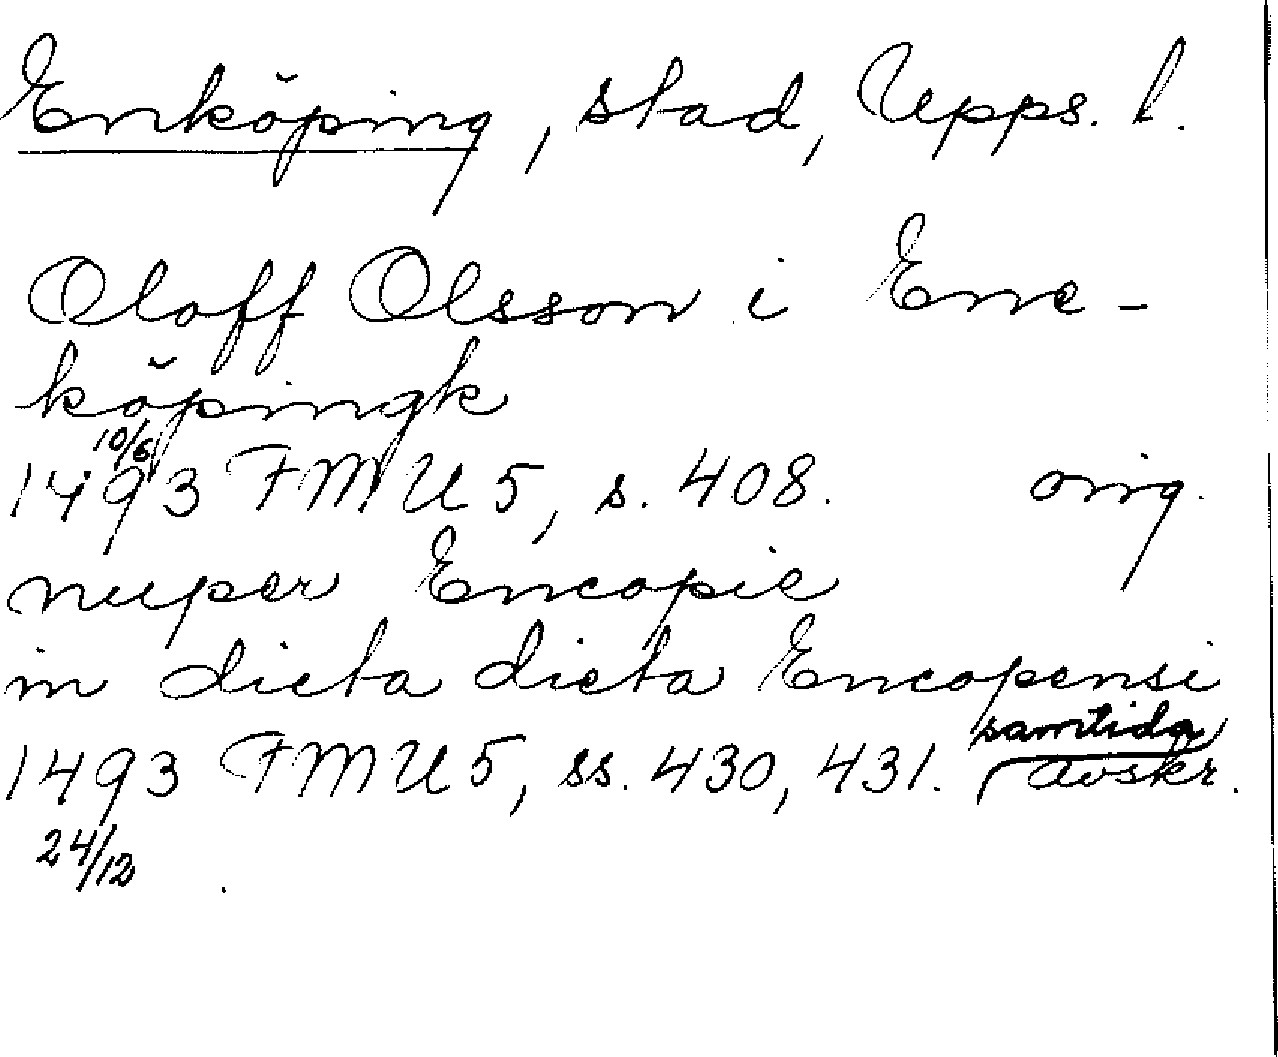 Enköping, stad, Upps. l.
Oloff Olsson i Ene-
köpingk
10/6
1493 FMU 5, s. 408. orig.
nuper Encopie
in dieta dieta Encopensi
samtida
1493 FMU 5, ss. 430, 431. avskr.
24/12